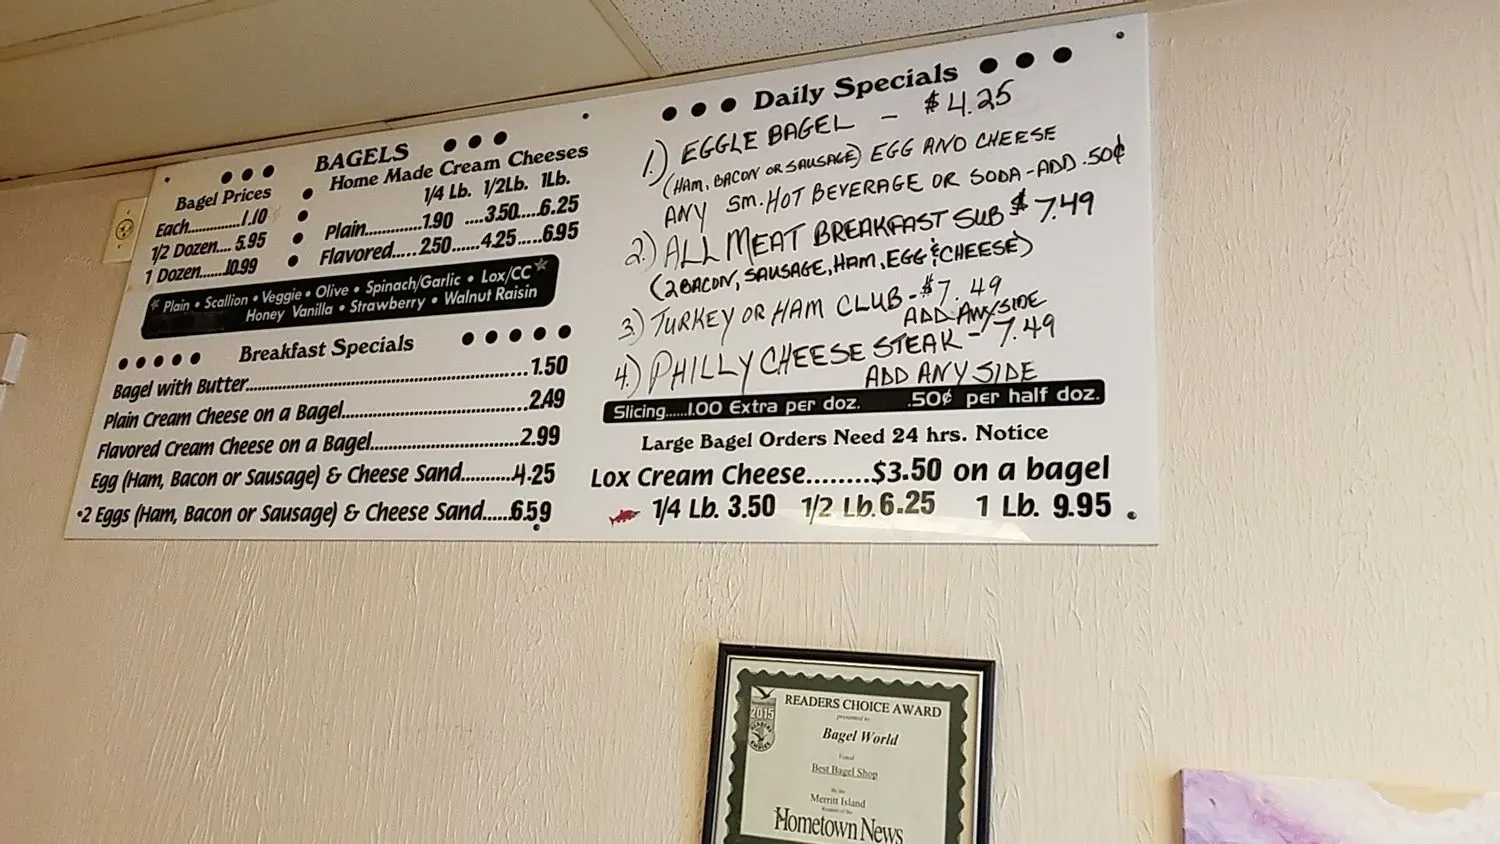 BAGELS
Bagel Prices
Each.............1.10
1/2 Dozen.... 5.95
1 Dozen.......10.99
Home Made Cream Cheeses
1/4 Lb. 1/2Lb. 1Lb.
Plain.............1.90 ....3.50.....6.25
Flavored.....2.50......4.25.....6.95
* Plain • Scallion • Veggie • Olive • Spinach/Garlic • Lox/CC *
Honey Vanilla • Strawberry • Walnut Raisin
Breakfast Specials
Bagel with Butter.......................................................1.50
Plain Cream Cheese on a Bagel....................................2.49
Flavored Cream Cheese on a Bagel.............................2.99
Egg (Ham, Bacon or Sausage) & Cheese Sand..........4.25
•2 Eggs (Ham, Bacon or Sausage) & Cheese Sand.....6.59
Daily Specials
1.) EGGLE BAGEL - $4.25
(HAM, BACON OR SAUSAGE) EGG AND CHEESE
ANY SM. HOT BEVERAGE OR SODA-ADD .50¢
2.) ALL MEAT BREAKFAST SUB $7.49
(2 BACON, SAUSAGE, HAM, EGG & CHEESE)
3.) TURKEY OR HAM CLUB-$7.49
ADD ANY SIDE
4.) PHILLY CHEESE STEAK - 7.49
ADD ANY SIDE
Slicing.....1.00 Extra per doz. .50¢ per half doz.
Large Bagel Orders Need 24 hrs. Notice
Lox Cream Cheese........$3.50 on a bagel
1/4 Lb. 3.50 1/2 Lb. 6.25 1 Lb. 9.95
2015
READERS CHOICE AWARD
presented to
Bagel World
Voted
Best Bagel Shop
By the
Merritt Island
Readers of the
Hometown News